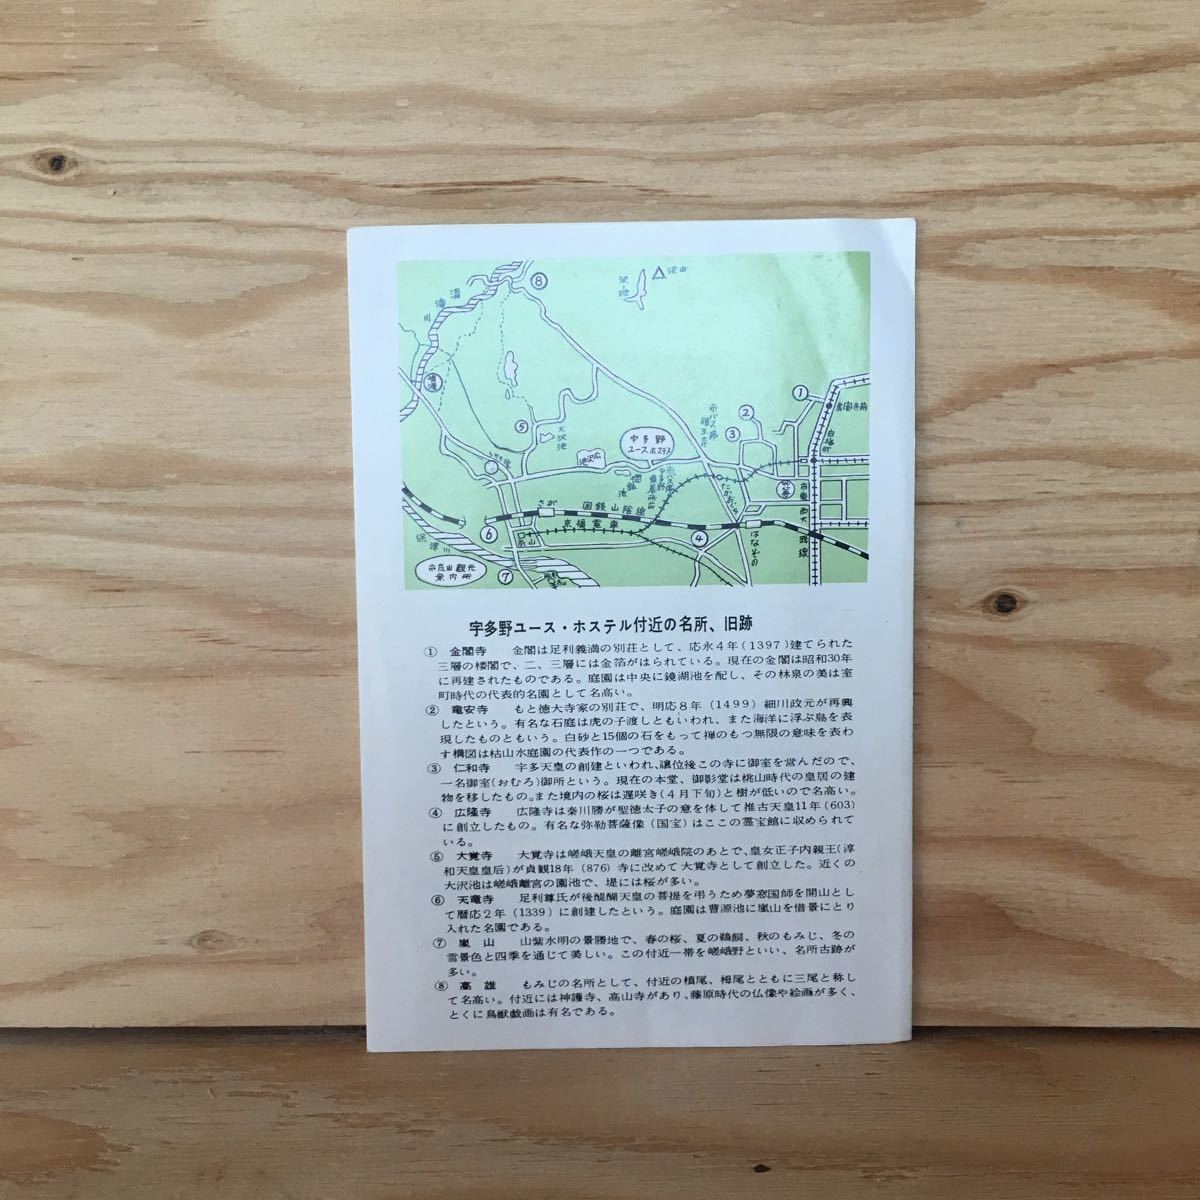 ⑧
沢山
沢ノ池
清滝川
清滝
①
金閣寺前
②
③
白梅町
⑤
大沢池
広沢池
宇多野
ユースホステル
さが
国鉄山陰線
京福電車
はなぞの
市電西大路線
④
⑥
嵐山
保津川
⑦
市嵐山観光
案内所
宇多野ユース・ホステル付近の名所、旧跡
① 金閣寺 金閣は足利義満の別荘として、応永4年(1397)建てられた
三層の楼閣で、二、三層には金箔がはられている。現在の金閣は昭和30年
に再建されたものである。庭園は中央に鏡湖池を配し、その林泉の美は室
町時代の代表的名園として名高い。
② 竜安寺 もと徳大寺家の別荘で、明応8年(1499)細川政元が再興
したという。有名な石庭は虎の子渡しともいわれ、また海洋に浮ぶ島を表
現したものともいう。白砂と15個の石をもって禅のもつ無限の意味を表わ
す構図は枯山水庭園の代表作の一つである。
③ 仁和寺 宇多天皇の創建といわれ、譲位後この寺に御室を営んだので、
一名御室(おむろ)御所という。現在の本堂、御影堂は桃山時代の皇居の建
物を移したもの。また境内の桜は遅咲き(4月下旬)と樹が低いので名高い。
④ 広隆寺 広隆寺は秦川勝が聖徳太子の意を体して推古天皇11年(603)
に創立したもの。有名な弥勒菩薩像(国宝)はここの霊宝館に収められて
いる。
⑤ 大覚寺 大覚寺は嵯峨天皇の離宮嵯峨院のあとで、皇女正子内親王(淳
和天皇皇后)が貞観18年(876)寺に改めて大覚寺として創立した。近くの
大沢池は嵯峨離宮の園池で、堤には桜が多い。
⑥ 天竜寺 足利尊氏が後醍醐天皇の菩提を弔うため夢窓国師を開山とし
て暦応2年(1339)に創建したという。庭園は曹源池に嵐山を借景にとり
入れた名園である。
⑦ 嵐山 山紫水明の景勝地で、春の桜、夏の鵜飼、秋のもみじ、冬の
雪景色と四季を通じて美しい。この付近一帯を嵯峨野といい、名所古跡が
多い。
⑧ 高雄 もみじの名所として、付近の槙尾、栂尾とともに三尾と称し
て名高い。付近には神護寺、高山寺があり、藤原時代の仏像や絵画が多く、
とくに鳥獣戯画は有名である。